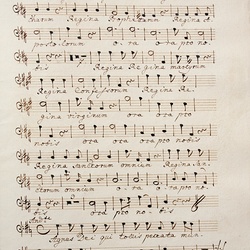 tharum Regina Prophetarum Regina A-
postolorum o-ra ora pro no-
bis Regina Regina martirum
Regina Confessorum Regina Re-
gina virginum ora ora pro
nobis
Regina sanctorum omnium Regina San-
ctorum omnium o-ra ora pro no-
bis ora pro nobis
Agnus Dei qui tollis peccata mun-